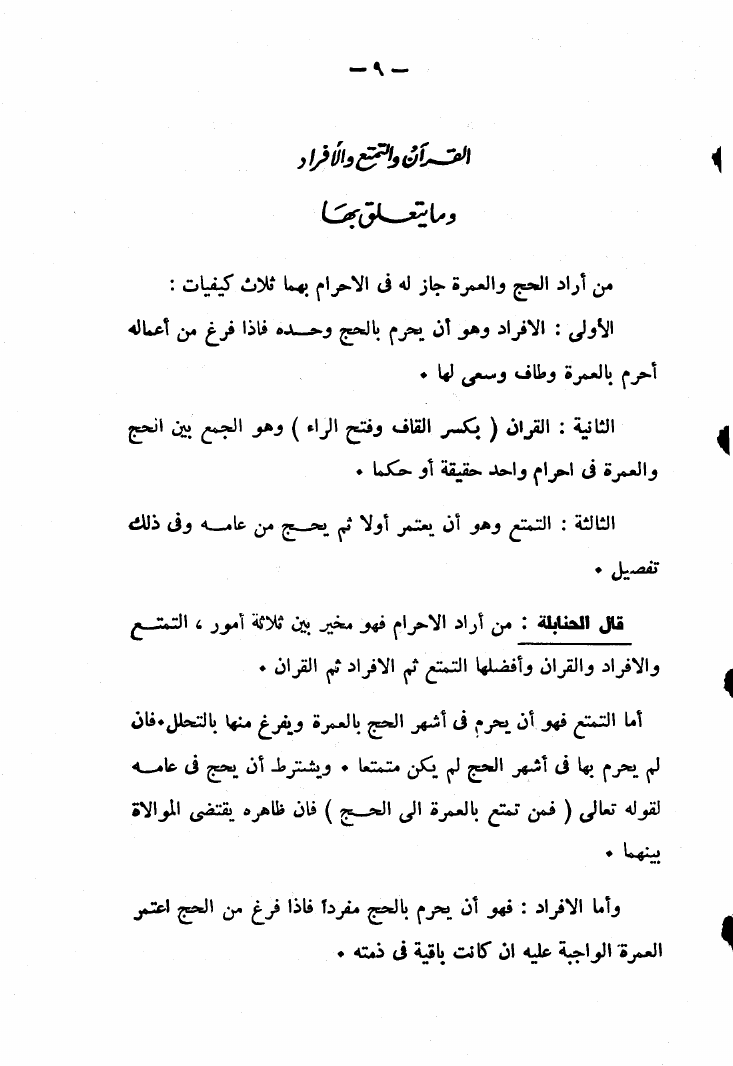 — ٩ —
القـرآن والتمتع والأفراد
وما يتعـلق بها
من أراد الحج والعمرة جاز له فى الاحرام بهما ثلاث كيفيات :
الأولى : الافراد وهو أن يحرم بالحج وحـده فاذا فرغ من أعماله
أحرم بالعمرة وطاف وسعى لها •
الثانية : القران ( بكسر القاف وفتح الراء ) وهو الجمع بين الحج
والعمرة فى احرام واحد حقيقة أو حكما •
الثالثة : التمتع وهو أن يعتمر أولا ثم يحـج من عامـه وفى ذلك
تفصيل •
قال الحنابلة : من أراد الاحرام فهو مخير بين ثلاثة أمور ، التمتـع
والافراد والقران وأفضلها التمتع ثم الافراد ثم القران •
أما التمتع فهو أن يحرم فى أشهر الحج بالعمرة ويفرغ منها بالتحلل•فان
لم يحرم بها فى أشهر الحج لم يكن متمتعا • ويشترط أن يحج فى عامـه
لقوله تعالى ( فمن تمتع بالعمرة الى الحـج ) فان ظاهره يقتضى الموالاة
بينهما •
وأما الافراد : فهو أن يحرم بالحج مفرداً فاذا فرغ من الحج اعتمر
العمرة الواجبة عليه ان كانت باقية فى ذمته •